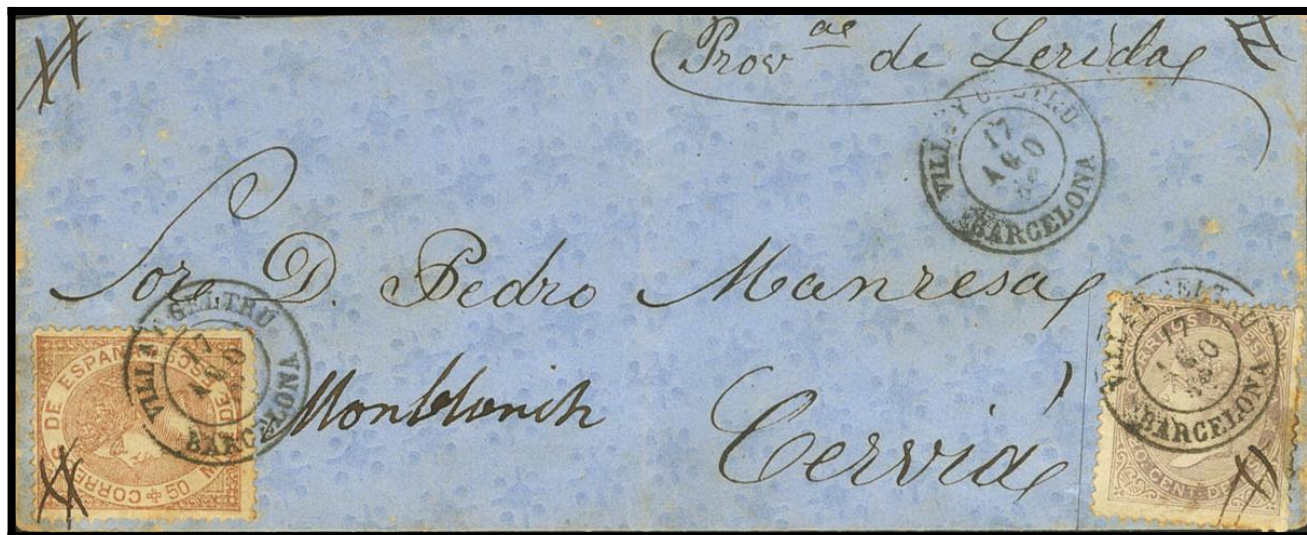 (Prov ae de Lerida)
VILLA Y GELTRU
17
AGO
BARCELONA
Sor. D. Pedro Manresa
Monblanch
Cerviá
VILLA Y GELTRU
17
AGO
BARCELONA
CORREOS DE ESPAÑA
50
VILLA Y GELTRU
17
AGO
BARCELONA
CENT. DE